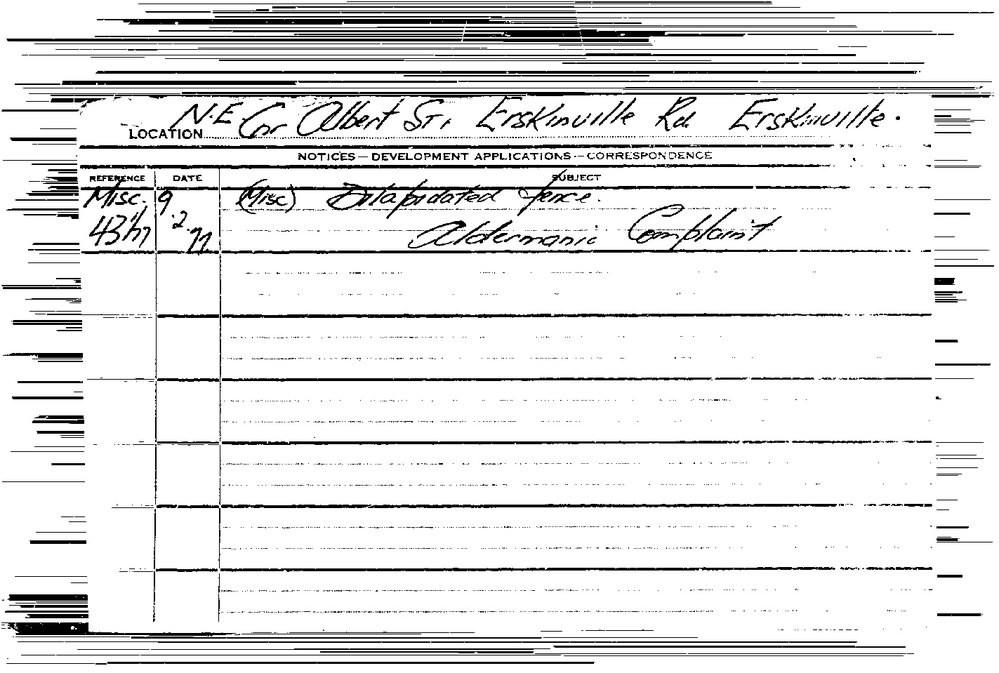 LOCATION N.E Cnr Albert St, Erskinville Rd Erskinville.
NOTICES — DEVELOPMENT APPLICATIONS — CORRESPONDENCE
REFERENCE DATE SUBJECT
Misc. 9 (Misc) Dilapidated fence.
43/77 .2.77 Aldermanic Complaint